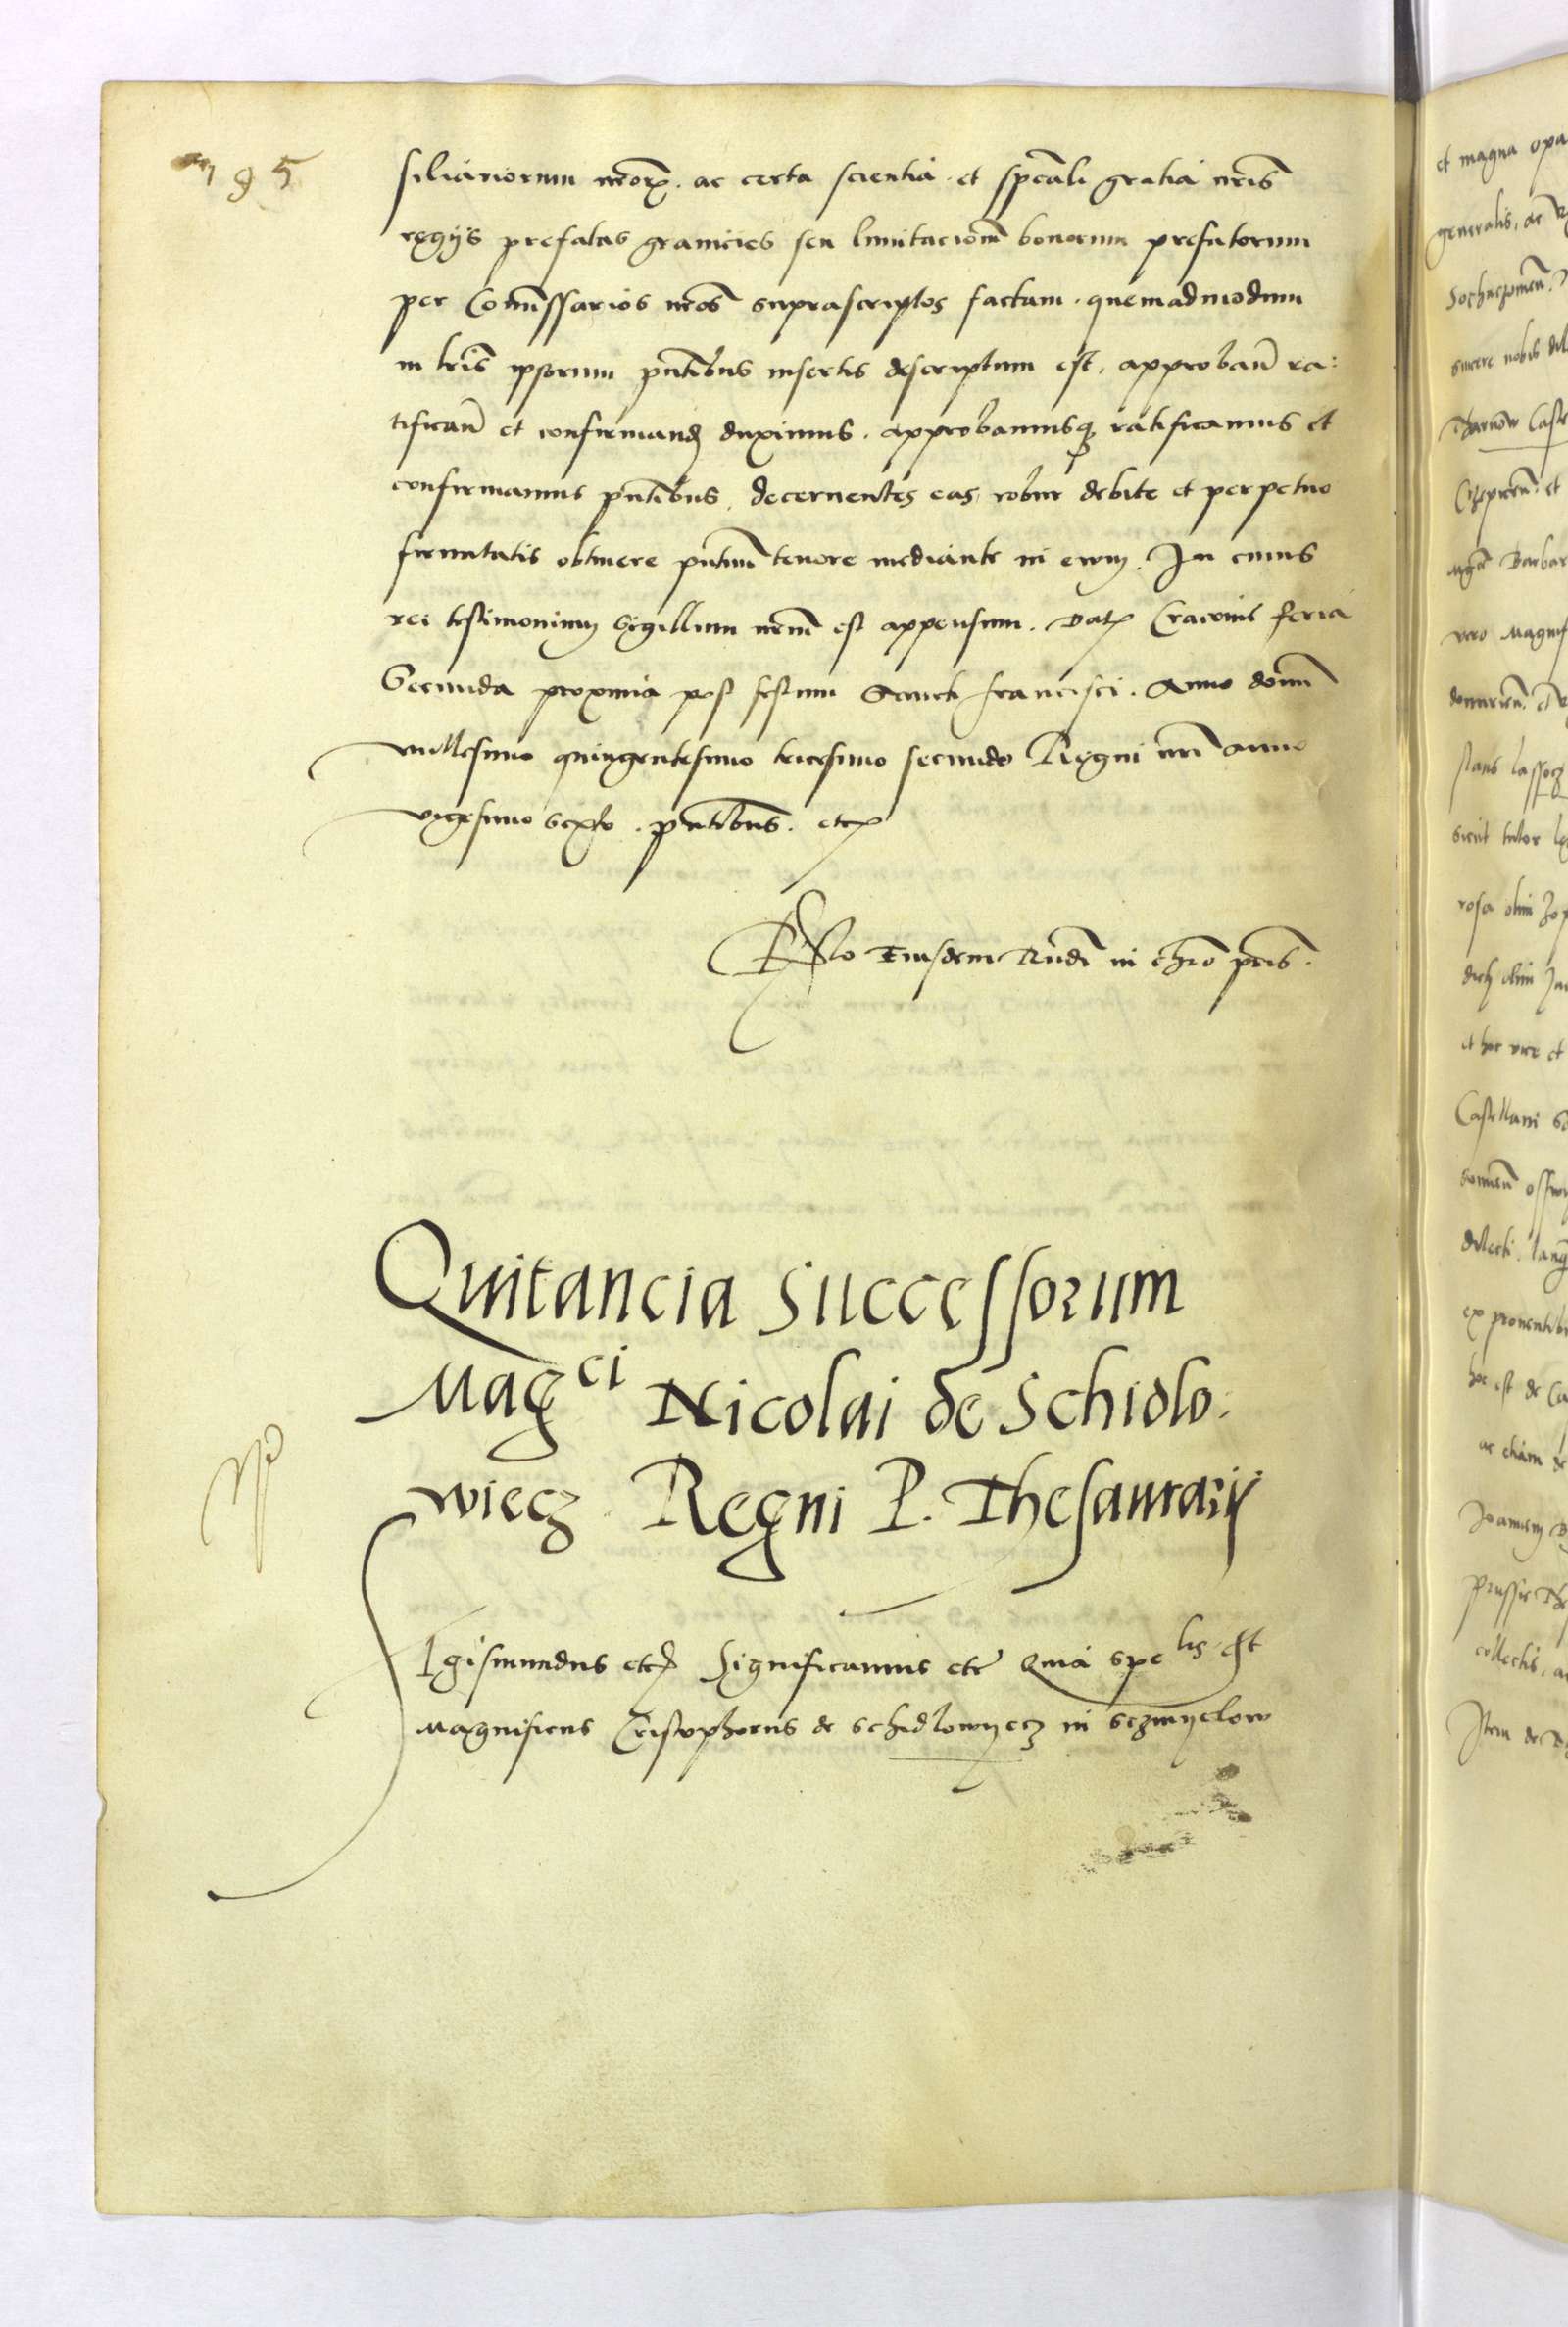 785
siliariorum nror(um). ac certa scientia et spēali gratia nrīs
regijs prefatas granicies seu limitacionē bonorum prefatorum
per Comīssarios nrōs suprascriptos factam. quemadmodum
in lrīs ipsorum pntībus insertis descriptum est, approbanđ ra:
tificanđ et confirmanđ duximus. approbamusq(ue) ratificamus et
confirmamus pntībus, decernentes eas robur debite et perpetuo
firmitatis obtinere pntiū tenore mediante in ewm. In cuius
rei testimonium Sigillum nrum est appensum. Dat Cracovie feria
Secunda proxima post festum Sancti francisci. Anno domī
millesimo quingentesimo tricesimo secundo Regni nrī anno
vigesimo sexto. pntībus. etc
Rlō Eiusdem Rndī in chrō prīs.
Quitancia Successorum
Mag^ci Nicolai de Schidlo
wiecz Regni P. Thesaurarij
Sigismundus etc Significamus etc Quia spe^lis et
Magnificus Cristophorus de Schidlowyecz in Sczmyelow
et magna opa
generalis, ac
Sochaczowień.
sincere nobis dil
Tharnow Cast
et
Barbar
vero Magnif
stans lassocz
sicut tutor
rosa olim
olim
et hac vice et
Castellani
dilecti.
ex proventib
hoc est de
ac etiam de
Joannem
prussie
collectis, a
Item de